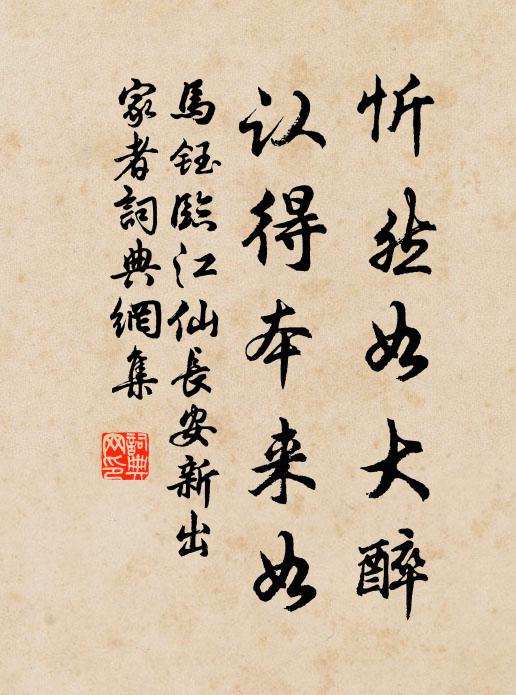 忻然如大醉
认得本来如
馬鈺臨江仙長安新出
家者詞典網集
詞典网印